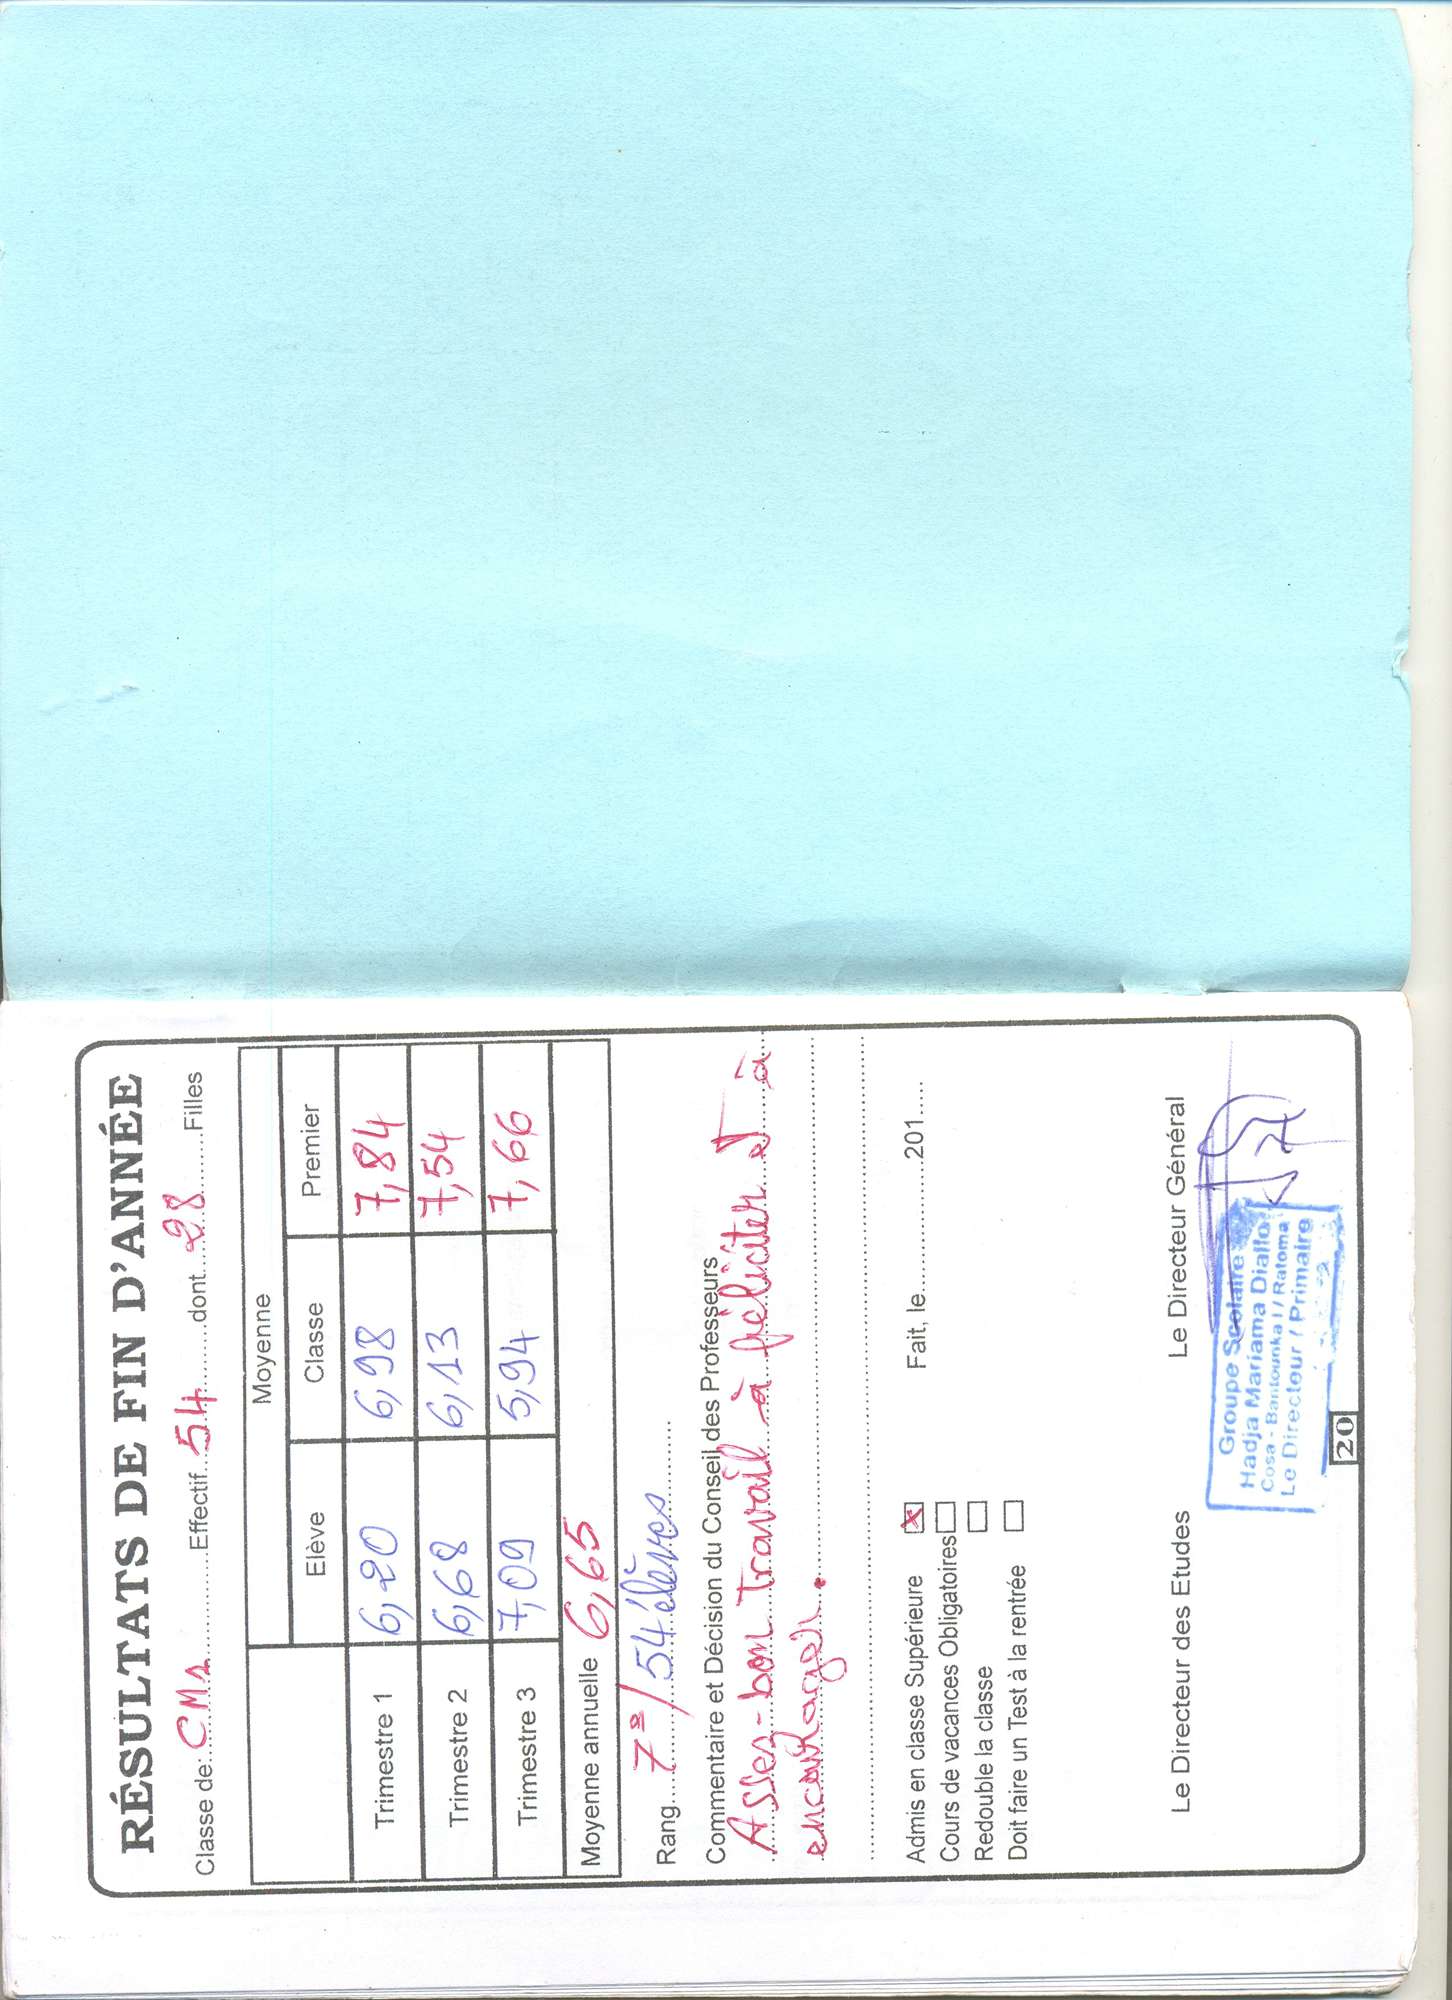 RÉSULTATS DE FIN D'ANNÉE
Classe de: CM1 Effectif 54 dont 28 Filles
Moyenne
Elève Classe Premier
Trimestre 1 6,20 6,98 7,84
Trimestre 2 6,68 6,13 7,54
Trimestre 3 7,09 5,94 7,66
Moyenne annuelle 6,65
Rang 7e / 54 élèves
Commentaire et Décision du Conseil des Professeurs
Assez-bon travail à féliciter et à
encourager.
Admis en classe Supérieure x Fait, le 201
Cours de vacances Obligatoires
Redouble la classe
Doit faire un Test à la rentrée
Le Directeur des Etudes Le Directeur Général
Groupe Scolaire
Hadja Mariama Diallo
Cosa - Bantounka I / Ratoma
Le Directeur / Primaire
20